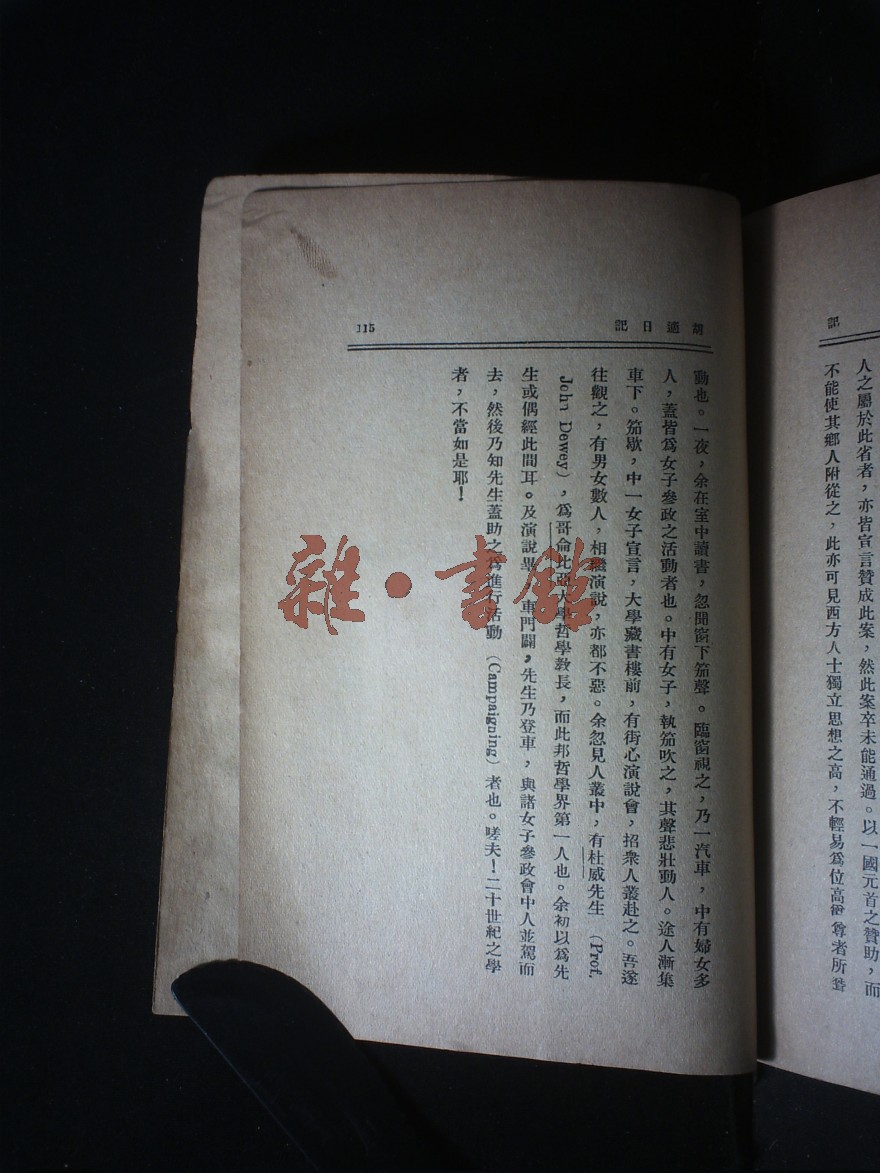 記
人之屬於此省者，亦皆宣言贊成此案，然此案卒未能通過。以一國元首之贊助，而
不能使其鄉人附從之，此亦可見西方人士獨立思想之高，不輕易爲位高 尊者所
胡適日記
115
動也。一夜，余在室中讀書，忽聞窗下笳聲。臨窗視之，乃一汽車，中有婦女多
人，蓋皆爲女子參政之活動者也。中有女子，執笳吹之，其聲悲壯動人。途人漸集
車下。笳歇，中一女子宣言，大學藏書樓前，有街心演說會，招衆人叢赴之。吾遂
往觀之，有男女數人，相繼演說，亦都不惡。余忽見人叢中，有杜威先生（Prof.
John Dewey），爲哥侖比亞大學哲學敎長，而此邦哲學界第一人也。余初以爲先
生或偶經此間耳。及演說畢，車門闢，先生乃登車，與諸女子參政會中人並駕而
去，然後乃知先生蓋助之爲進行活動（Campaigning）者也。嗟夫！二十世紀之學
者，不當如是耶！
雜·書館